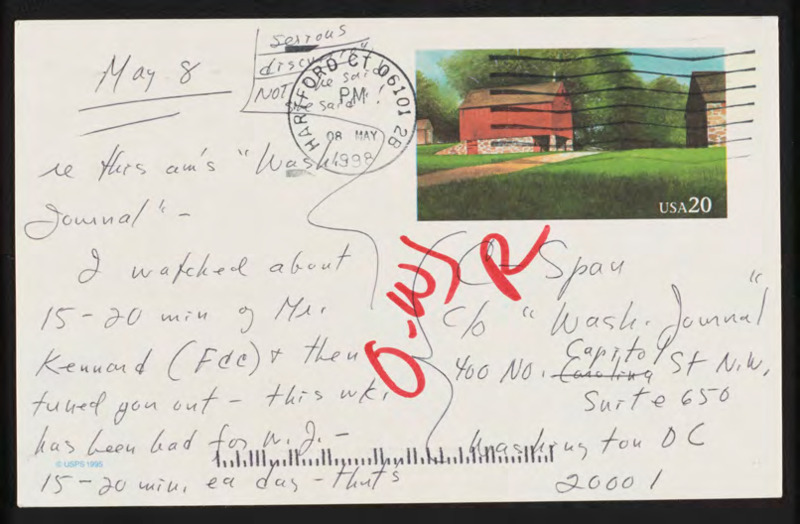 May 8
serious
NOT he said
she said.
HARTFORD CT 06101 2B
PM
08 MAY
1998
USA20
re this am's "Wash.
Journal" -
I watched about
15-20 min of Mr.
Kennard (FCC) & then
tuned you out - this wk.
has been bad for W.J. -
15-20 min. ea day - that's
O-W/
R
C-Span
c/o "Wash. Journal"
400 No. Capitol St N.W.
Carolina
Suite 650
Washington DC
20001
© USPS 1995